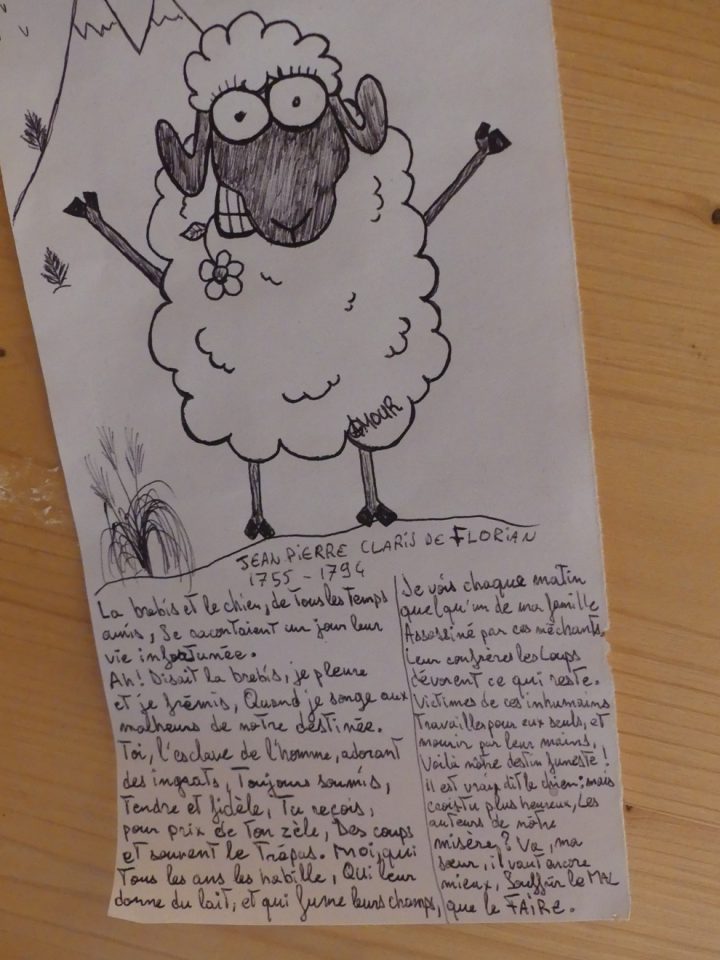 AMOUR
JEAN PIERRE CLARIS DE FLORIAN
1755 - 1794
La brebis et le chien, de tous les temps
amis, Se racontaient un jour leur
vie infortunée.
Ah! Disait la brebis, je pleure
et je frémis, Quand je songe aux
malheurs de notre destinée.
Toi, l'esclave de l'homme, adorant
des ingrats, Toujours soumis,
Tendre et fidèle, Tu reçois,
pour prix de Ton zèle, Des coups
et souvent le Trépas. Moi, qui
Tous les ans les habille, Qui leur
donne du lait, et qui fume leurs champs,
Je vois chaque matin
quelqu'un de ma famille
Assassiné par ces méchants,
Leur confrères les Loups
dévorent ce qui reste.
Victimes de ces inhumains
Travailler pour eux seuls, et
mourir par leur mains,
Voilà nôtre destin funeste!
il est vrai, dit le chien: mais
crois tu plus heureux, Les
auteurs de nôtre
misère? Va, ma
sœur, il vaut encore
mieux, Souffrir le MAL
que le FAIRE.